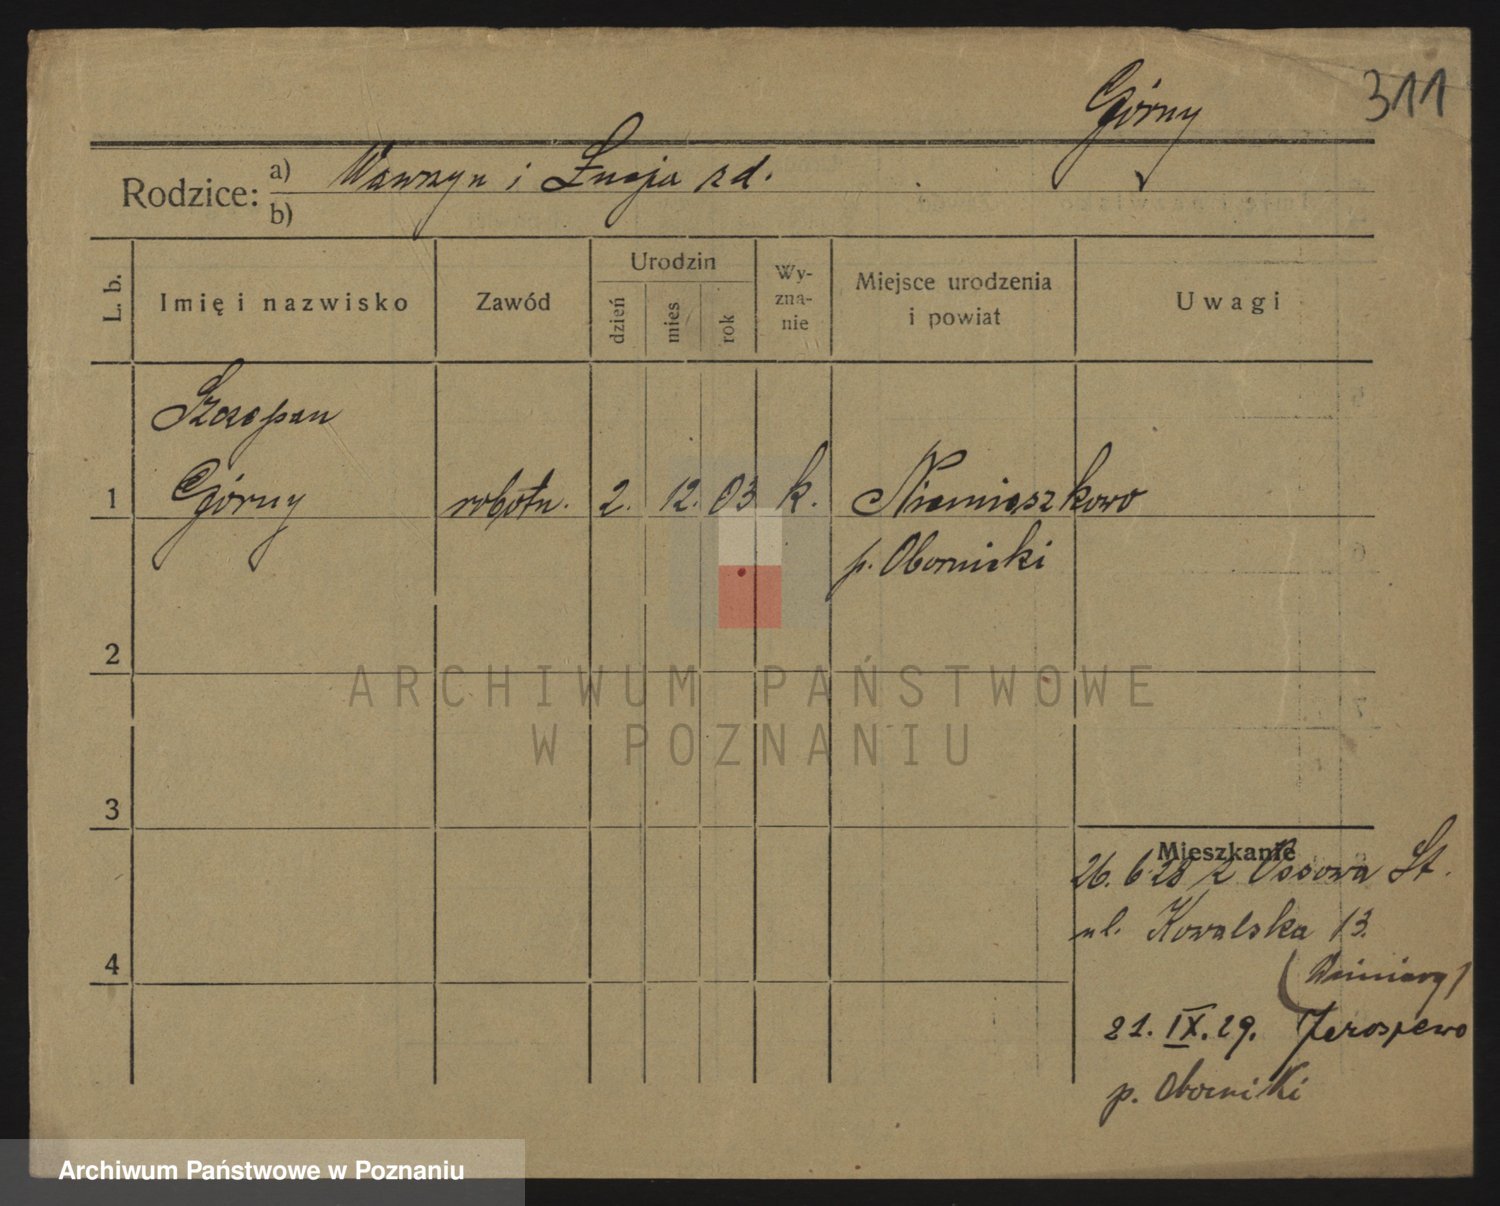 Górny 311
Rodzice: a) Wawrzyn i Łucja zd.
b)
L. b. Imię i nazwisko Zawód Urodzin dzień mies rok Wy-zna-nie Miejsce urodzenia i powiat Uwagi
Szczepan
1 Górny robotn. 2. 12. 03 k. Niemieszkowo
p. Obornicki
2
ARCHIWUM PAŃSTWOWE
W POZNANIU
3
Mieszkanie
26. 6 28 z Ossowa St.
ul. Kowalska 13.
4
21. IX. 29. Jaroszewo
p. Oborniki
Archiwum Państwowe w Poznaniu